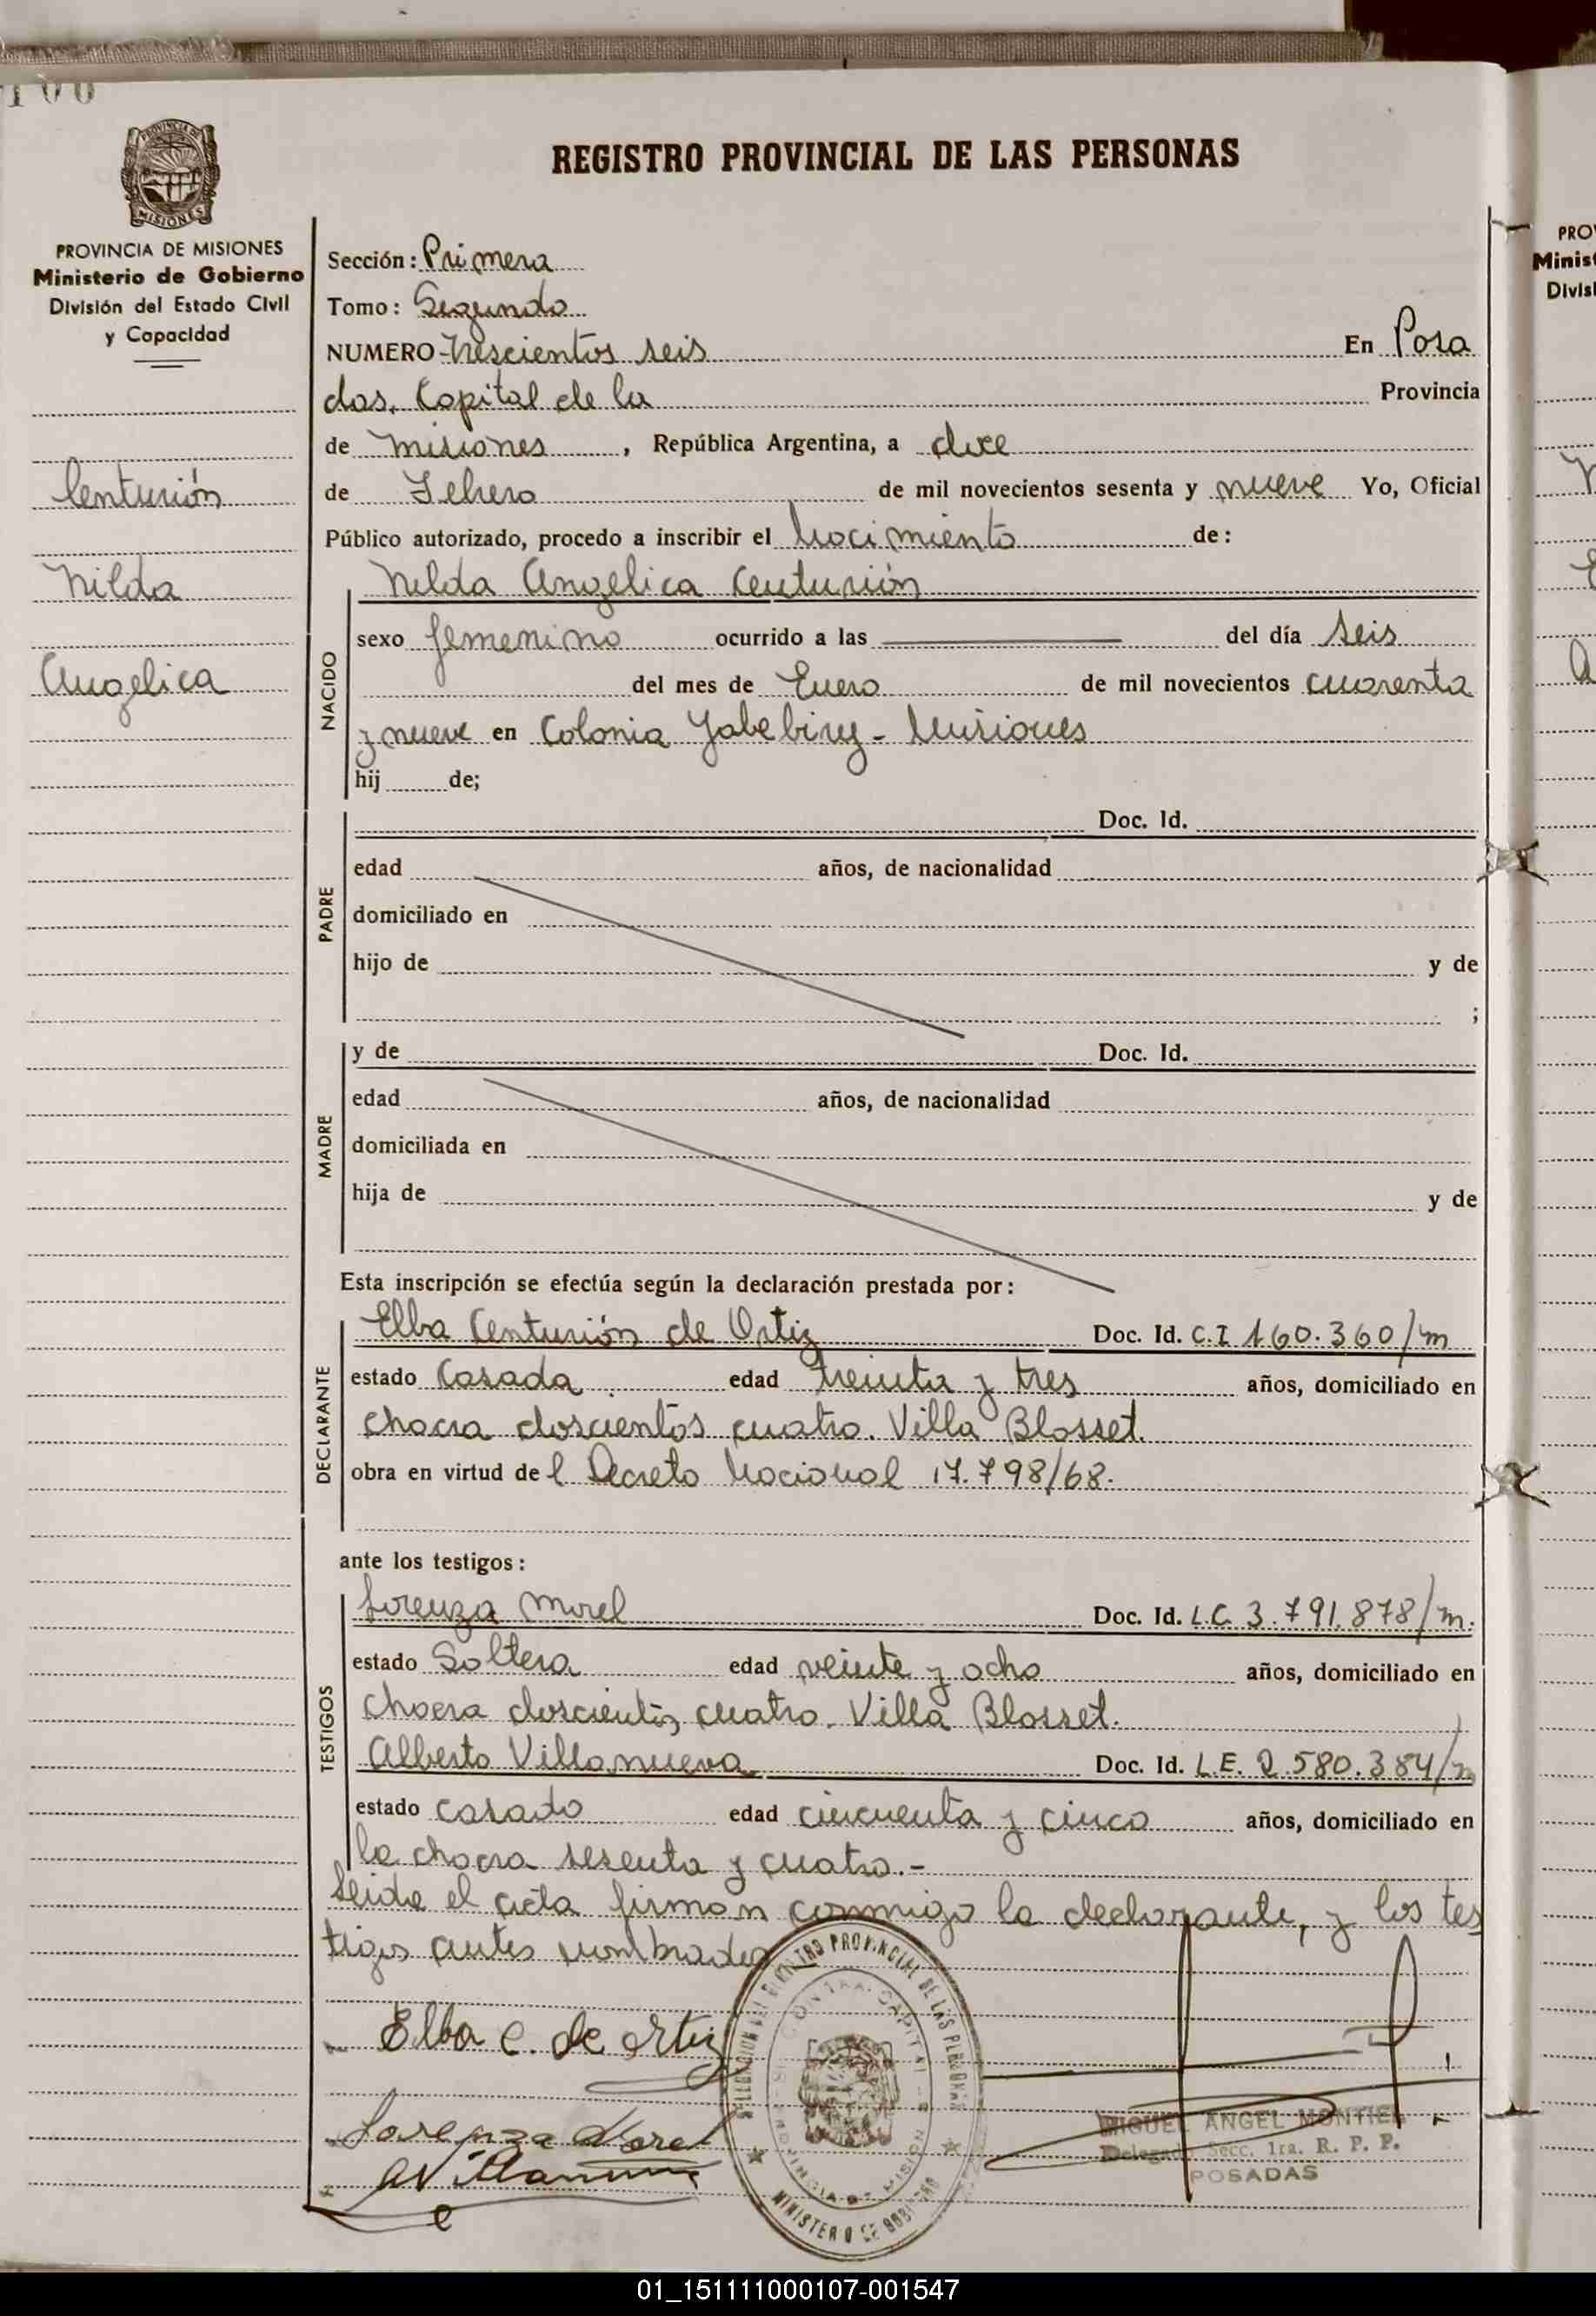 REGISTRO PROVINCIAL DE LAS PERSONAS
PROVINCIA DE MISIONES
Ministerio de Gobierno
División del Estado Civil
y Capacidad
Centurión
Nilda
Angelica
Sección: Primera
Tomo: Segundo
NUMERO trescientos seis En Posa
das, Capital de la Provincia
de misiones, República Argentina, a doce
de Febrero de mil novecientos sesenta y nueve Yo, Oficial
Público autorizado, procedo a inscribir el Nacimiento de:
NACIDO
Nilda Angelica Centurión
sexo femenino ocurrido a las del día seis
del mes de Enero de mil novecientos cuarenta
y nueve en Colonia Yabebiry - Misiones
hij de;
PADRE
Doc. Id.
edad años, de nacionalidad
domiciliado en
hijo de y de
;
MADRE
y de Doc. Id.
edad años, de nacionalidad
domiciliada en
hija de y de
Esta inscripción se efectúa según la declaración prestada por:
DECLARANTE
Elba Centurión de Ortiz Doc. Id. C.I 160.360/m
estado Casada edad treinta y tres años, domiciliado en
chacra doscientos cuatro. Villa Blosset.
obra en virtud del Decreto Nacional 17.798/68.
ante los testigos:
TESTIGOS
Lorenza Morel Doc. Id. L.C. 3.791.878/m.
estado Soltera edad veinte y ocho años, domiciliado en
Chacra doscientos cuatro. Villa Blosset.
Alberto Villanueva Doc. Id. L.E. 2.580.384/m
estado casado edad cincuenta y cinco años, domiciliado en
la chacra sesenta y cuatro.-
Leida el acta firman conmigo la declarante, y los tes
tigos antes nombrados
Elba C. de Ortiz
Lorenza Morel
A Villanueva
PROVINCIAL DE LAS PERSONAS
MINISTERIO DE GOBIERNO
MIGUEL ANGEL MONTIEL
Delegado Secc. 1ra. R. P. P.
POSADAS
PRO
Minist
Divis
01_151111000107-001547